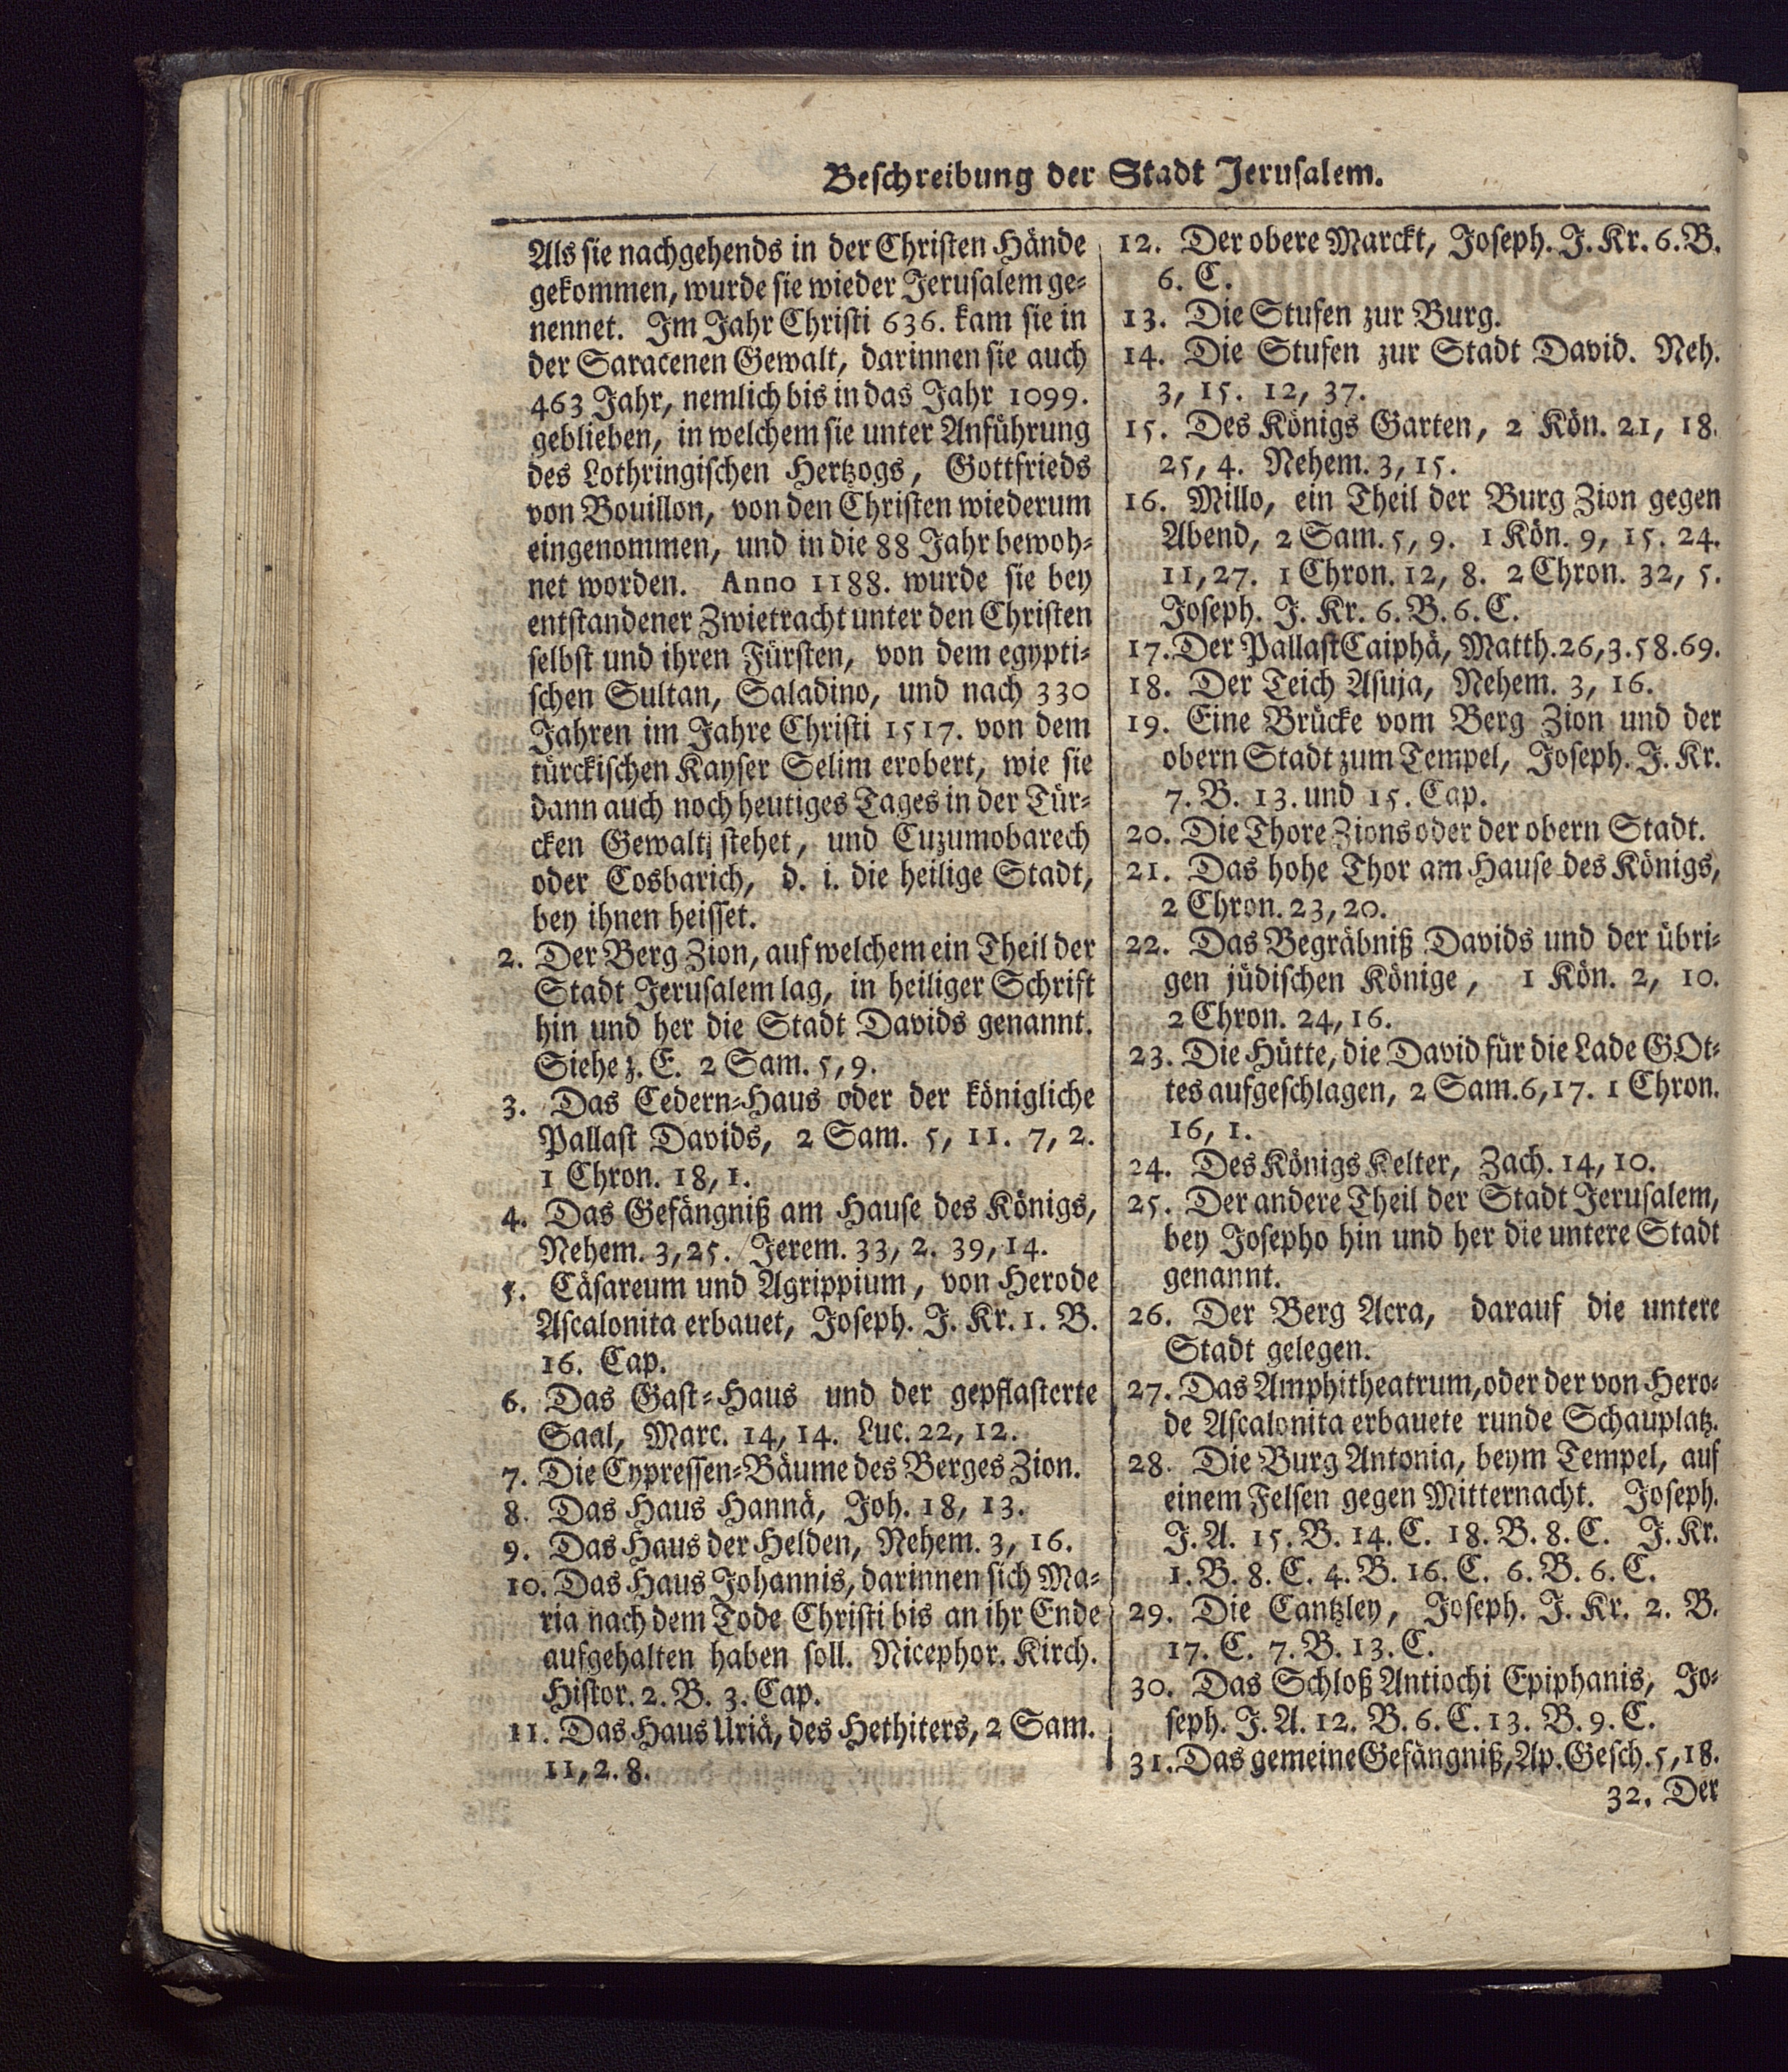 Beschreibung der Stadt Jerusalem.
Als sie nachgehends in der Christen Hände
gekommen, wurde sie wieder Jerusalem ge-
nennet. Im Jahr Christi 636. kam sie in
der Saracenen Gewalt, darinnen sie auch
463 Jahr, nemlich bis in das Jahr 1099.
geblieben, in welchem sie unter Anführung
des Lothringischen Hertzogs, Gottfrieds
von Bouillon, von den Christen wiederum
eingenommen, und in die 88 Jahr bewoh-
net worden. Anno 1188. wurde sie bey
entstandener Zwietracht unter den Christen
selbst und ihren Fürsten, von dem egypti-
schen Sultan, Saladino, und nach 330
Jahren im Jahre Christi 1517. von dem
türckischen Kayser Selim erobert, wie sie
dann auch noch heutiges Tages in der Tür-
cken Gewalt stehet, und Cuzumobarech
oder Cosbarich, d. i. die heilige Stadt,
bey ihnen heisset.
2. Der Berg Zion, auf welchem ein Theil der
Stadt Jerusalem lag, in heiliger Schrift
hin und her die Stadt Davids genannt.
Siehe z. E. 2 Sam. 5, 9.
3. Das Cedern-Haus oder der königliche
Pallast Davids, 2 Sam. 5, 11. 7, 2.
1 Chron. 18, 1.
4. Das Gefängniß am Hause des Königs,
Nehem. 3, 25. Jerem. 33, 2. 39, 14.
5. Cäsareum und Agrippium, von Herode
Ascalonita erbauet, Joseph. J. Kr. 1. B.
16. Cap.
6. Das Gast-Haus und der gepflasterte
Saal, Marc. 14, 14. Luc. 22, 12.
7. Die Cypressen-Bäume des Berges Zion.
8. Das Haus Hannä, Joh. 18, 13.
9. Das Haus der Helden, Nehem. 3, 16.
10. Das Haus Johannis, darinnen sich Ma-
ria nach dem Tode Christi bis an ihr Ende
aufgehalten haben soll. Nicephor. Kirch.
Histor. 2. B. 3. Cap.
11. Das Haus Uriä, des Hethiters, 2 Sam.
11, 2. 8.
12. Der obere Marckt, Joseph. J. Kr. 6. B.
6. C.
13. Die Stufen zur Burg.
14. Die Stufen zur Stadt David. Neh.
3, 15. 12, 37.
15. Des Königs Garten, 2 Kön. 21, 18.
25, 4. Nehem. 3, 15.
16. Millo, ein Theil der Burg Zion gegen
Abend, 2 Sam. 5, 9. 1 Kön. 9, 15. 24.
11, 27. 1 Chron. 12, 8. 2 Chron. 32, 5.
Joseph. J. Kr. 6. B. 6. C.
17. Der Pallast Caiphä, Matth. 26, 3. 58. 69.
18. Der Teich Asuja, Nehem. 3, 16.
19. Eine Brücke vom Berg Zion und der
obern Stadt zum Tempel, Joseph. J. Kr.
7. B. 13. und 15. Cap.
20. Die Thore Zions oder der obern Stadt.
21. Das hohe Thor am Hause des Königs,
2 Chron. 23, 20.
22. Das Begräbniß Davids und der übri-
gen jüdischen Könige, 1 Kön. 2, 10.
2 Chron. 24, 16.
23. Die Hütte, die David für die Lade GOt-
tes aufgeschlagen, 2 Sam. 6, 17. 1 Chron.
16, 1.
24. Des Königs Kelter, Zach. 14, 10.
25. Der andere Theil der Stadt Jerusalem,
bey Josepho hin und her die untere Stadt
genannt.
26. Der Berg Acra, darauf die untere
Stadt gelegen.
27. Das Amphitheatrum, oder der von Hero-
de Ascalonita erbauete runde Schauplatz.
28. Die Burg Antonia, beym Tempel, auf
einem Felsen gegen Mitternacht. Joseph.
J. A. 15. B. 14. C. 18. B. 8. C. J. Kr.
1. B. 8. C. 4. B. 16. C. 6. B. 6. C.
29. Die Cantzley, Joseph. J. Kr. 2. B.
17. C. 7. B. 13. C.
30. Das Schloß Antiochi Epiphanis, Jo-
seph. J. A. 12. B. 6. C. 13. B. 9. C.
31. Das gemeine Gefängniß, Ap. Gesch. 5, 18.
32. Der